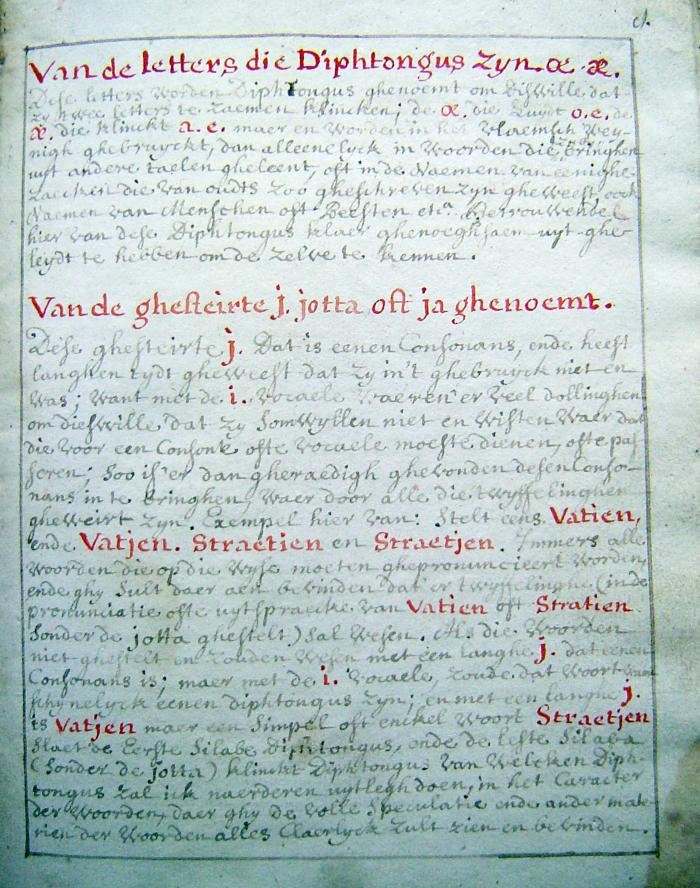 Van de letters die Diphtongus zyn œ. æ.
Dese letters worden Diphtongus ghenoemt om diswille dat
zy twee letters te zaemen klincken; de œ. die luydt o.e. de
æ. die klinckt a.e. maer en worden in het vlaemsch wey-
nigh ghebruyckt, dan alleenelyck in woorden die bringhen
uyt andere taelen gheleent, oft in de naemen van eenighe
zaecken die van oudts zoo gheschreven zyn gheweest oock
naemen van Menschen oft Beesten etca. Betrouwende
hier van dese Diphtongus klaer ghenoeghsaem uyt-ghe-
leydt te hebben om de zelve te kennen.
Van de ghesteirte j. jotta oft ja ghenoemt.
Dese ghesteirte j. Dat is eenen Consonans, ende heeft
langhen tydt gheweest dat zy in't ghebruyck niet en
was; want met de i. vocaele waeren er veel dollinghen
om dieswille dat zy somwyllen niet en wisten waer dat
die voor een Consonk ofte vocaele moeste dienen, ofte pas-
seren; Soo is'er dan gheraedigh ghevonden desen Conso-
nans in te bringhen, waer door alle die twyffelinghen
gheweirt zyn. Exempel hier van: Stelt eens Vatien,
ende Vatjen. Straetien en Straetjen. Immers alle
woorden die op die wyse moeten ghepronuncieert worden,
ende ghy sult daer aen bevinden dat er twyffelinghe (in de
pronunciatie ofte uytspraecke van Vatien oft Stratien
Sonder de jotta ghestelt) sal wesen. Als die woorden
niet ghestelt en zouden wesen met een langhe j. dat eenen
Consonans is; maer met de i. vocaele, zoude dat woort
schynelyck eenen diphtongus zyn; en met een langhe j.
is Vatjen maer een simpel oft enckel woort Straetjen
Staet de Eerste Silabe diphtongus, ende de leste Silaba
(Sonder de jotta) klinckt Diphtongus van welcken Diph-
tongus zal ick naerderen uytlegh doen, in het Caracter
der woorden, daer ghy de volle speculatie ende ander mate-
rien der woorden alles Claerlyck zult zien en bevinden.